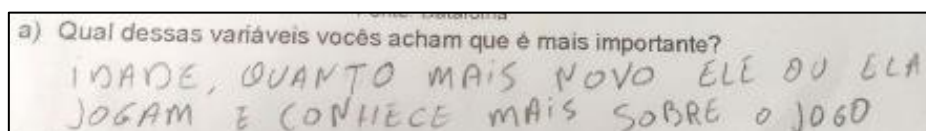 Fonte: Dataforma
a) Qual dessas variáveis vocês acham que é mais importante?
IDADE, QUANTO MAIS NOVO ELE OU ELA
JOGAM E CONHECE MAIS SOBRE O JOGO